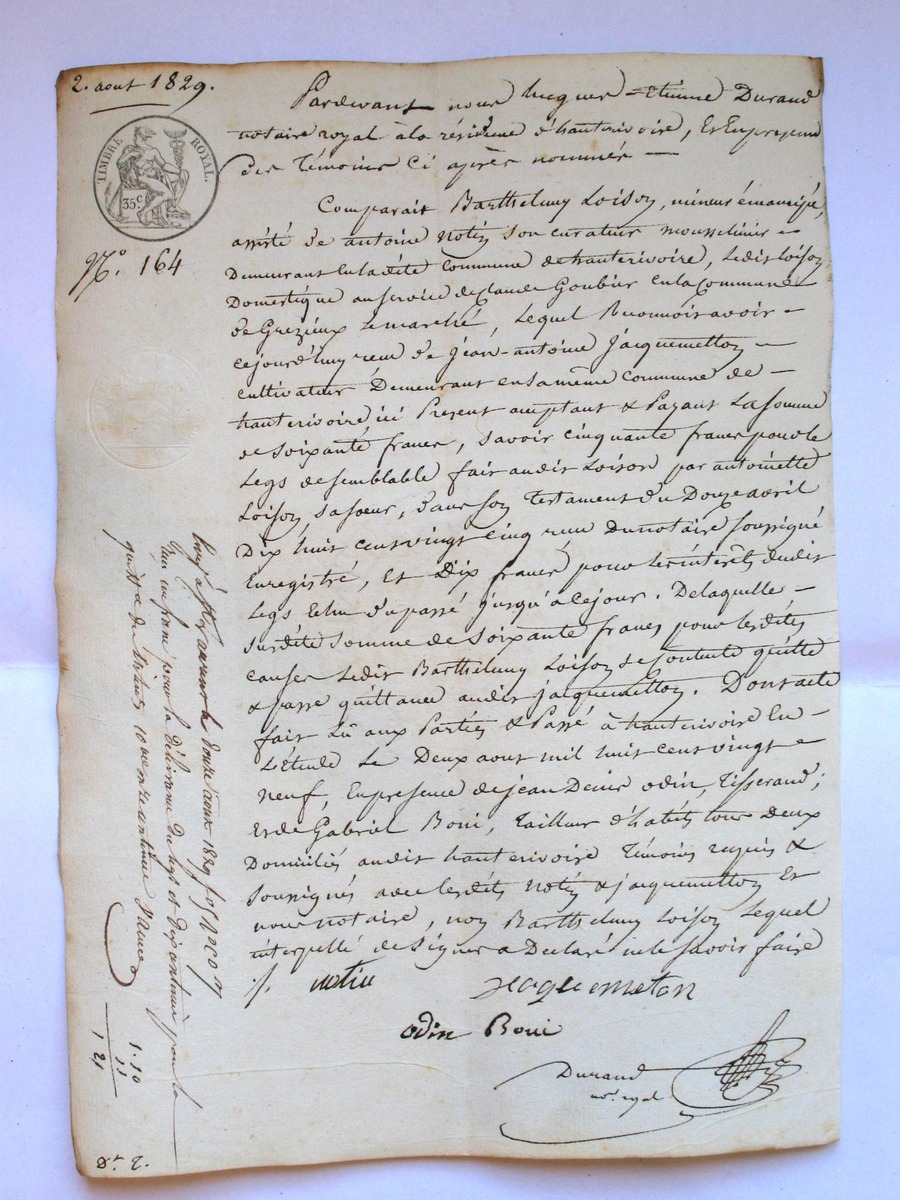 2. aout 1829.
TIMBRE ROYAL.
35 C
N.o 164
Pardevant nous Jacques = Etienne Durand
notaire royal à la résidence d'hauterivoire, Et En presence
des Témoins Ci après nommés —
Comparait Barthelemy Loison, mineur émancipé,
assisté de antoine Notin son curateur mousselinier =
Demeurant En la dite Commune de hauterivoire, Ledit Loison
Domestique au service de claude Goubier En la Commune
de Grezieux Le marché, Lequel Reconnoit avoir =
cejourd'huy reçu de jean-antoine jacquemetton =
Cultivateur Demeurant en la même commune de =
hauterivoire, ici Present acceptant & Payant La somme
de soixante francs, savoir cinquante francs pour le
Legs de semblable fait audit Loison par antoinette
Loison sa soeur, dans son Testament du Douze avril
Dix huit cent vingt cinq reçu Du notaire soussigné
Enregistré, Et Dix francs pour les interêts dudit
Legs Echu du passé jusqu'à ce jour. De laquelle =
susdite somme de soixante francs pour les dites
causes Ledit Barthelemy Loison se contente quitte
& passe quittance audit jacquemetton. Dont acte
fait Lû aux Parties & Passé à hauterivoire En =
L'étude Le Deux aout mil huit cent vingt =
neuf, En presence de jean Denis odin, Tisserand;
Et de Gabriel Boni, Tailleur d'habits tous deux
Domiciliés audit hauterivoire Témoins requis &
soussignés avec lesdits Notin & jacquemetton Et
nous notaire, non Barthelemy Loison Lequel
interpellé de signer a Declaré ne le savoir faire
/. notin jacquemeton
odin Boni
Durand
no.re royal
le douze aout 1829
un franc pour la délivrance du legs et dix centimes pour la
quittance
1.10
11
1 21
Dr. 2.